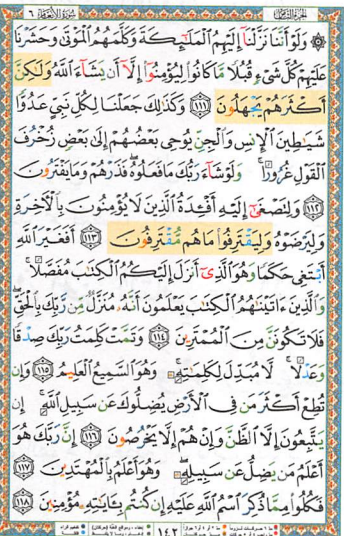 الجزء الثامن
سورة الأنعام ٦
۞ وَلَوْ أَنَّنَا نَزَّلْنَا إِلَيْهِمُ الْمَلَٰٓئِكَةَ وَكَلَّمَهُمُ الْمَوْتَىٰ وَحَشَرْنَا
عَلَيْهِمْ كُلَّ شَىْءٍ قُبُلًا مَّا كَانُوا۟ لِيُؤْمِنُوٓا۟ إِلَّآ أَن يَشَآءَ اللَّهُ وَلَٰكِنَّ
أَكْثَرَهُمْ يَجْهَلُونَ ١١١ وَكَذَٰلِكَ جَعَلْنَا لِكُلِّ نَبِىٍّ عَدُوًّا
شَيَٰطِينَ الْإِنسِ وَالْجِنِّ يُوحِى بَعْضُهُمْ إِلَىٰ بَعْضٍ زُخْرُفَ
الْقَوْلِ غُرُورًا ۚ وَلَوْ شَآءَ رَبُّكَ مَا فَعَلُوهُ ۖ فَذَرْهُمْ وَمَا يَفْتَرُونَ
١١٢ وَلِتَصْغَىٰٓ إِلَيْهِ أَفْـِٔدَةُ الَّذِينَ لَا يُؤْمِنُونَ بِالْـَٔاخِرَةِ
وَلِيَرْضَوْهُ وَلِيَقْتَرِفُوا۟ مَا هُم مُّقْتَرِفُونَ ١١٣ أَفَغَيْرَ اللَّهِ
أَبْتَغِى حَكَمًا وَهُوَ الَّذِىٓ أَنزَلَ إِلَيْكُمُ الْكِتَٰبَ مُفَصَّلًا ۚ
وَالَّذِينَ ءَاتَيْنَٰهُمُ الْكِتَٰبَ يَعْلَمُونَ أَنَّهُۥ مُنَزَّلٌ مِّن رَّبِّكَ بِالْحَقِّ ۖ
فَلَا تَكُونَنَّ مِنَ الْمُمْتَرِينَ ١١٤ وَتَمَّتْ كَلِمَتُ رَبِّكَ صِدْقًا
وَعَدْلًا ۚ لَّا مُبَدِّلَ لِكَلِمَٰتِهِۦ ۚ وَهُوَ السَّمِيعُ الْعَلِيمُ ١١٥ وَإِن
تُطِعْ أَكْثَرَ مَن فِى الْأَرْضِ يُضِلُّوكَ عَن سَبِيلِ اللَّهِ ۚ إِن
يَتَّبِعُونَ إِلَّا الظَّنَّ وَإِنْ هُمْ إِلَّا يَخْرُصُونَ ١١٦ إِنَّ رَبَّكَ هُوَ
أَعْلَمُ مَن يَضِلُّ عَن سَبِيلِهِۦ ۖ وَهُوَ أَعْلَمُ بِالْمُهْتَدِينَ ١١٧
فَكُلُوا۟ مِمَّا ذُكِرَ اسْمُ اللَّهِ عَلَيْهِ إِن كُنتُم بِـَٔايَٰتِهِۦ مُؤْمِنِينَ ١١٨
١٤٢